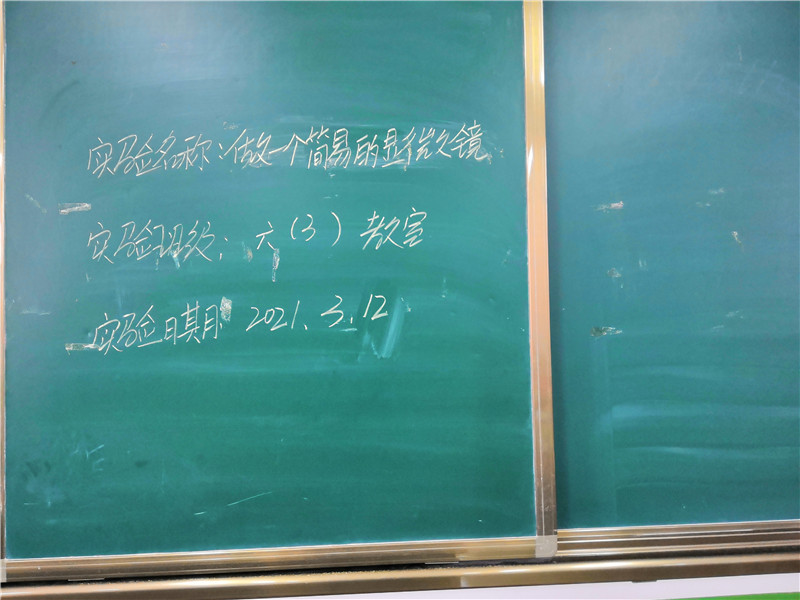 实验名称:做一个简易的显微镜
实验班级:六(3)教室
实验日期:2021.3.12